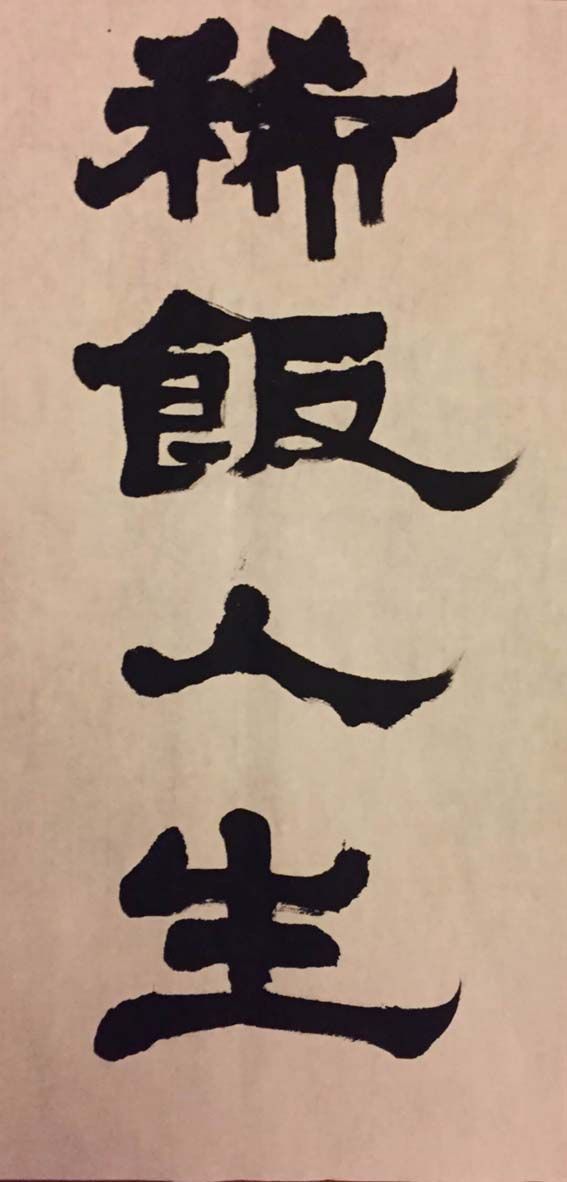 稀飯人生